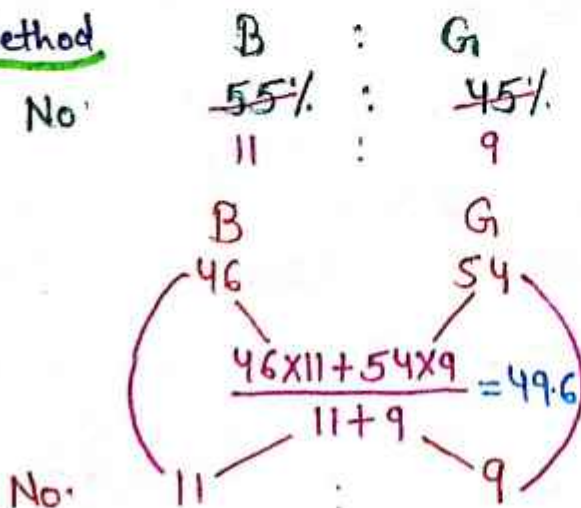 ethod B : G
No. 55% : 45%
11 : 9
B G
46 54
46×11+54×9
11+9
= 49.6
No. 11 : 9